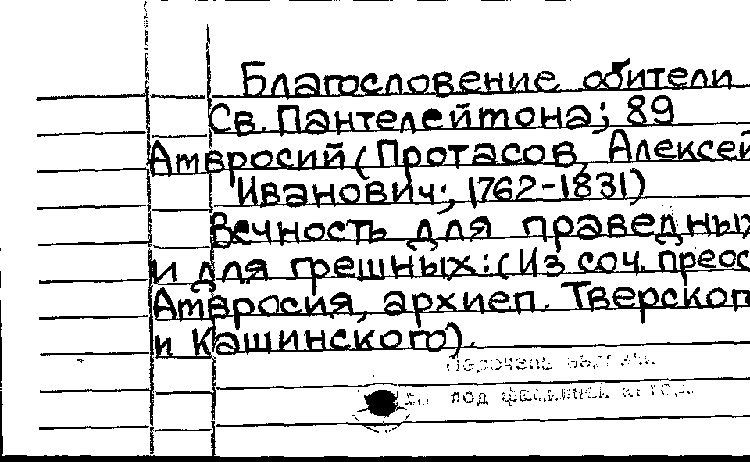 Благословение обители
Св. Пантелеймона; 89
Амвросий (Протасов, Алексей
Иванович; 1762-1831)
Вечность для праведных
и для грешных: (Из соч. преос
Амвросия, архиеп. Тверског
и Кашинского).
под